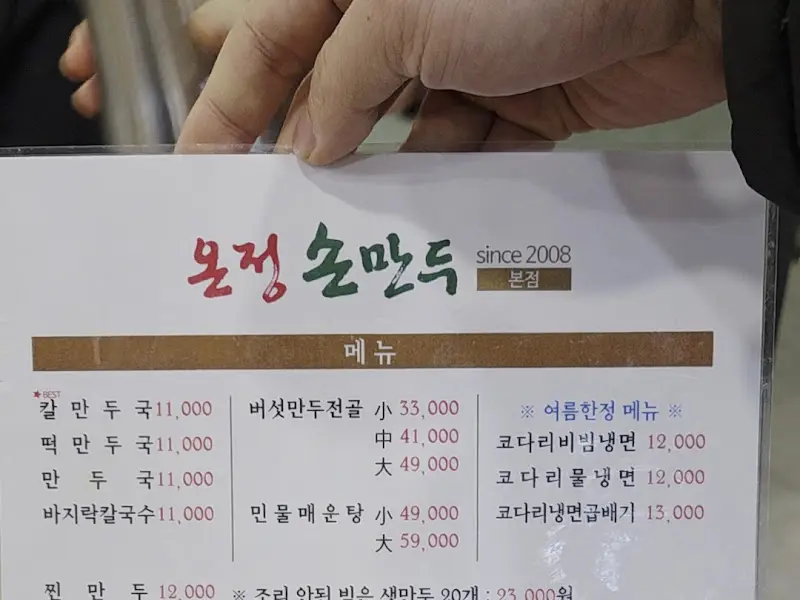 온정 손만두 since 2008
본점
메뉴
BEST
칼만두국 11,000
떡만두국 11,000
만두국 11,000
바지락칼국수 11,000
버섯만두전골 小 33,000
中 41,000
大 49,000
민물매운탕 小 49,000
大 59,000
※ 여름한정 메뉴 ※
코다리비빔냉면 12,000
코다리물냉면 12,000
코다리냉면곱배기 13,000
찐만두 12,000 ※ 조리 안된 빚은 생만두 20개 : 23,000원